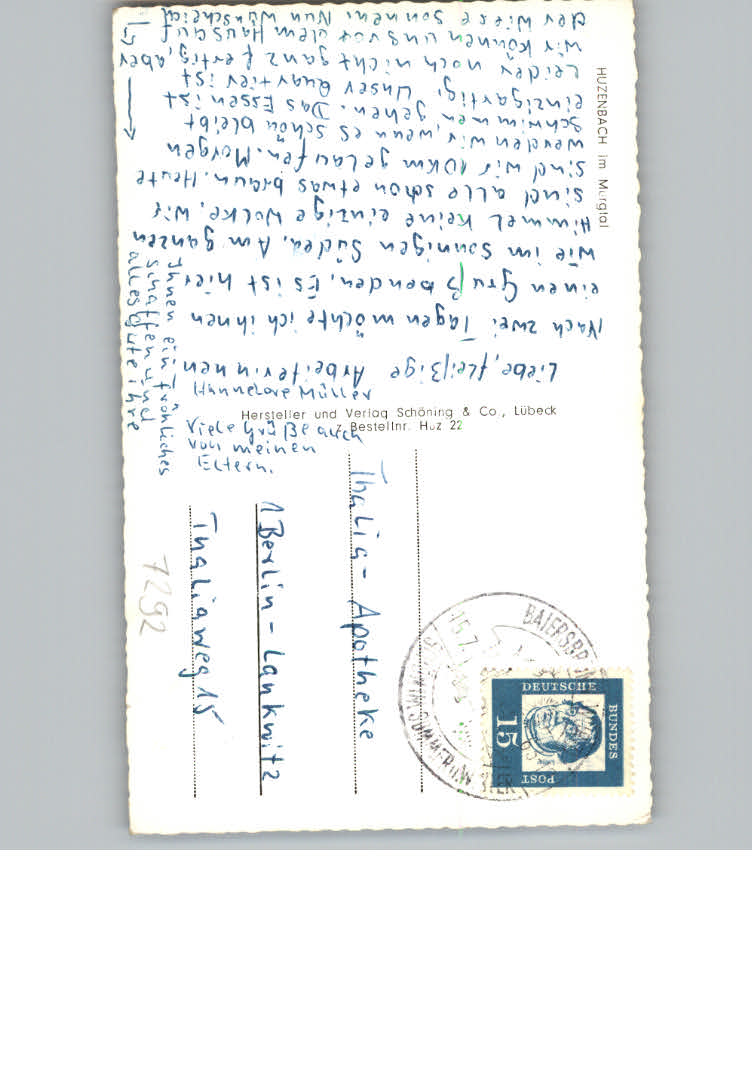 HUZENBACH im Murgtal
Liebe, fleißige Arbeiterinnen
Nach zwei Tagen möchte ich ihnen
einen Gruß senden. Es ist hier
wie im sonnigen Süden. Am ganzen
Himmel keine einzige Wolke. Wir
sind alle schon etwas braun. Heute
sind wir 10km gelaufen. Morgen
werden wir, wenn es schön bleibt
schwimmen gehen. Das Essen ist
einzigartig. Unser Quartier ist
Leider noch nicht ganz fertig, aber
wir können uns vor dem Haus auf
der Wiese sonnen. Nun wünsche ich
Ihnen ein fröhliches
Schaffen und
alles gute ihre
Hannelore Müller
Viele Grüße auch
von meinen
Eltern.
Hersteller und Verlag Schöning & Co., Lübeck
Bestellnr. Huz 22
Thalia-Apotheke
1 Berlin-Lankwitz
Thaliaweg 15
7292
BAIERSBRONN
15.7.
SOMMER U. WINTER
DEUTSCHE
BUNDES
POST
15